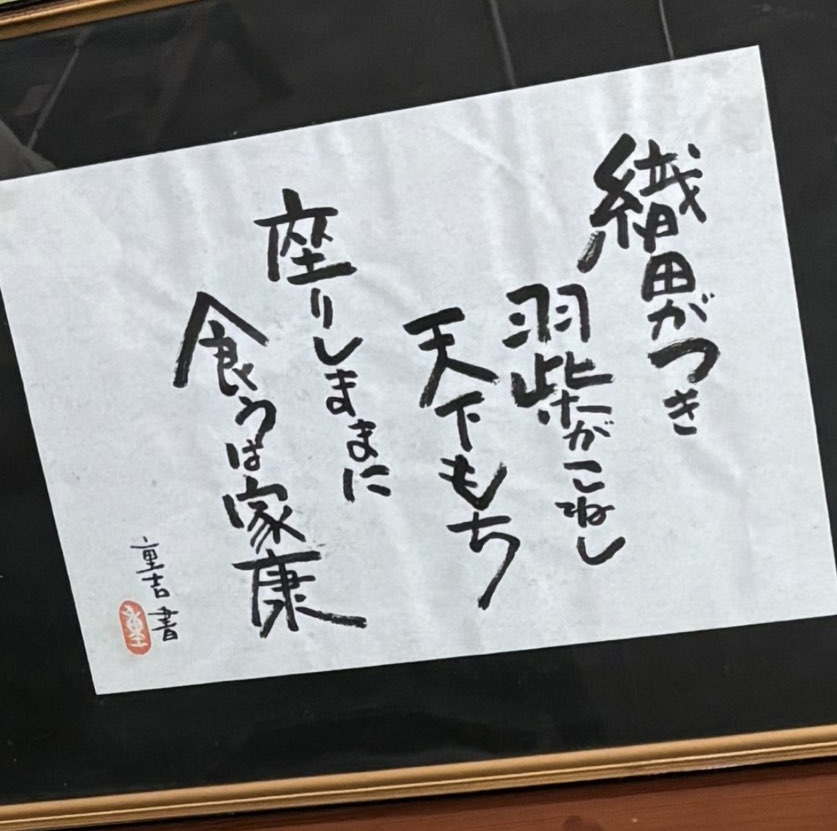 織田がつき
羽柴がこねし
天下もち
座りしままに
食うは家康
重吉書